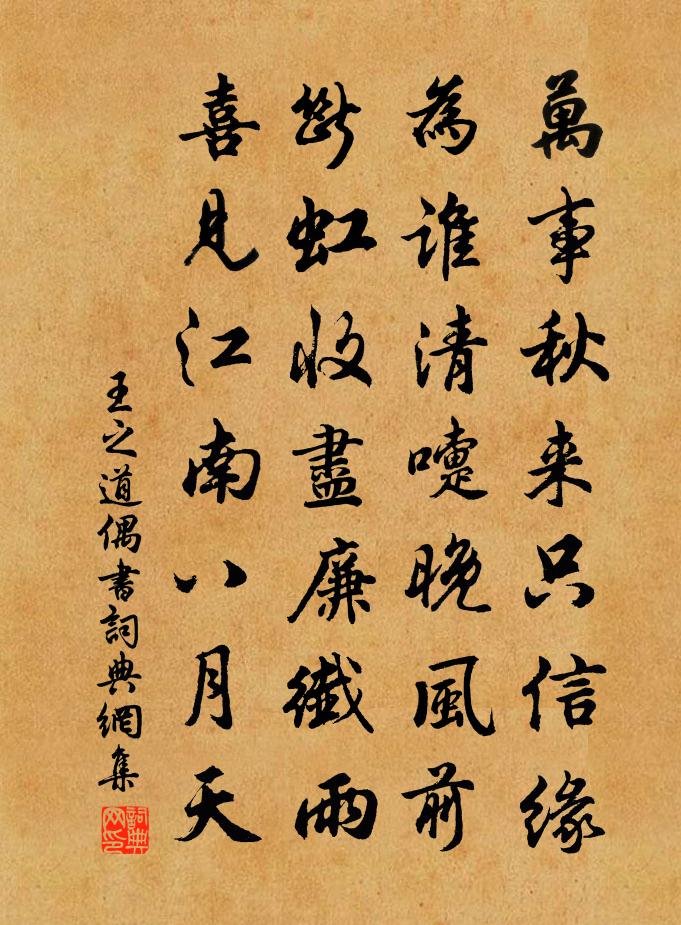 萬事秋来只信緣
為誰清嚏晚風前
断虹收盡廉纖雨
喜見江南八月天
王之道偶書詞典網集
詞典网印